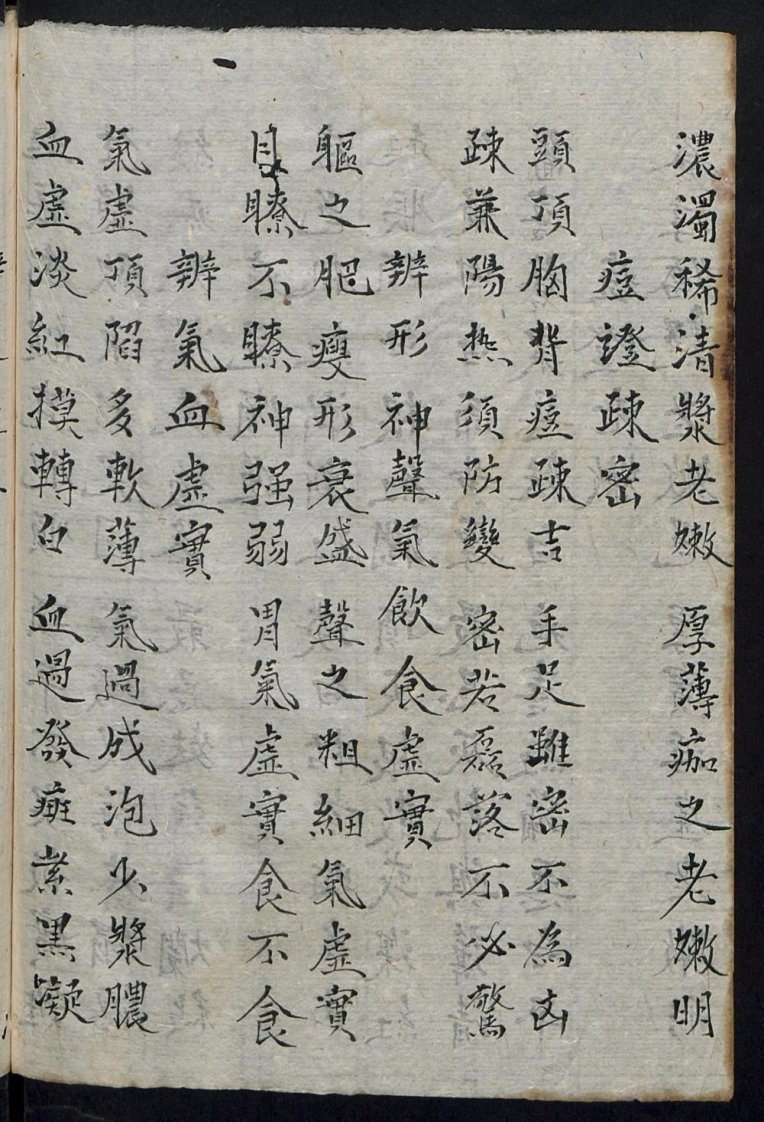 濃濁稀清漿老嫩 厚薄痂之老嫩明
痘證疎密
頭項胸背痘疎吉 手足雖密不為凶
疎兼陽热須防變 密若磊落不必驚
辨形神聲氣飲食虛實
軀之肥瘦形衰盛 聲之粗細氣虛實
目瞭不瞭神强弱 胃氣虛實食不食
辨氣血虛實
氣虛頂陷多軟薄 氣過成泡少漿膿
血虛淡紅摸轉白 血過發斑紫黑凝